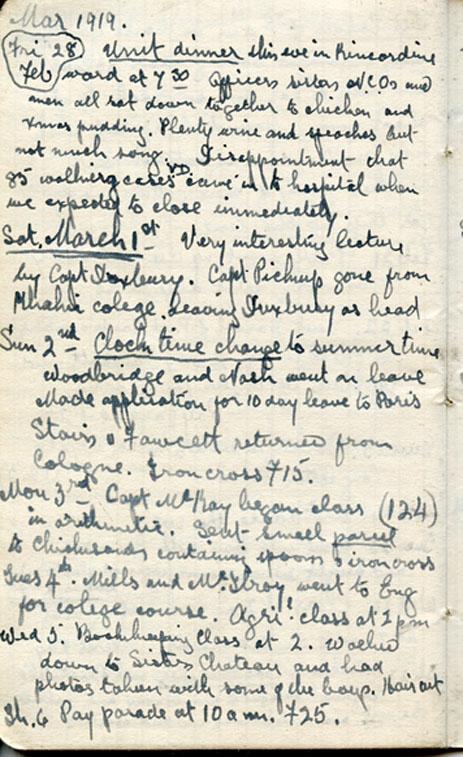 Mar 1919.
Fri 28 Feb Unit dinner this eve in Kincardine
ward at 7 30 Officers sisters NCOs and
men all sat down together to chicken and
Xmas pudding. Plenty wine and speaches but
not much song. Disappointment that
85 walking cases VD came in to hospital when
we expected to close immediately.
Sat. March 1st Very interesting lecture
by Capt Duxbury. Capt Pickup gone from
Khaki colege. Leaving Duxbury as head
Sun 2nd Clock time change to summer time
Woodbridge and Nash went on leave
Made application for 10 day leave to Paris
Stairs & Fawcett returned from
Cologne. Iron cross F15.
Mon 3rd Capt McKay began class (124)
in arithmetic. Sent small parcel
to containing spoons & iron cross
Tues 4th. Mills and McIlroy went to Eng
for colege course. Agril class at 2 pm
Wed 5. Bookkeeping Class at 2. Walked
down to Sisters Chateau and had
photos taken with some of the boys. Hair cut
Th. 6 Pay parade at 10 am. F25.